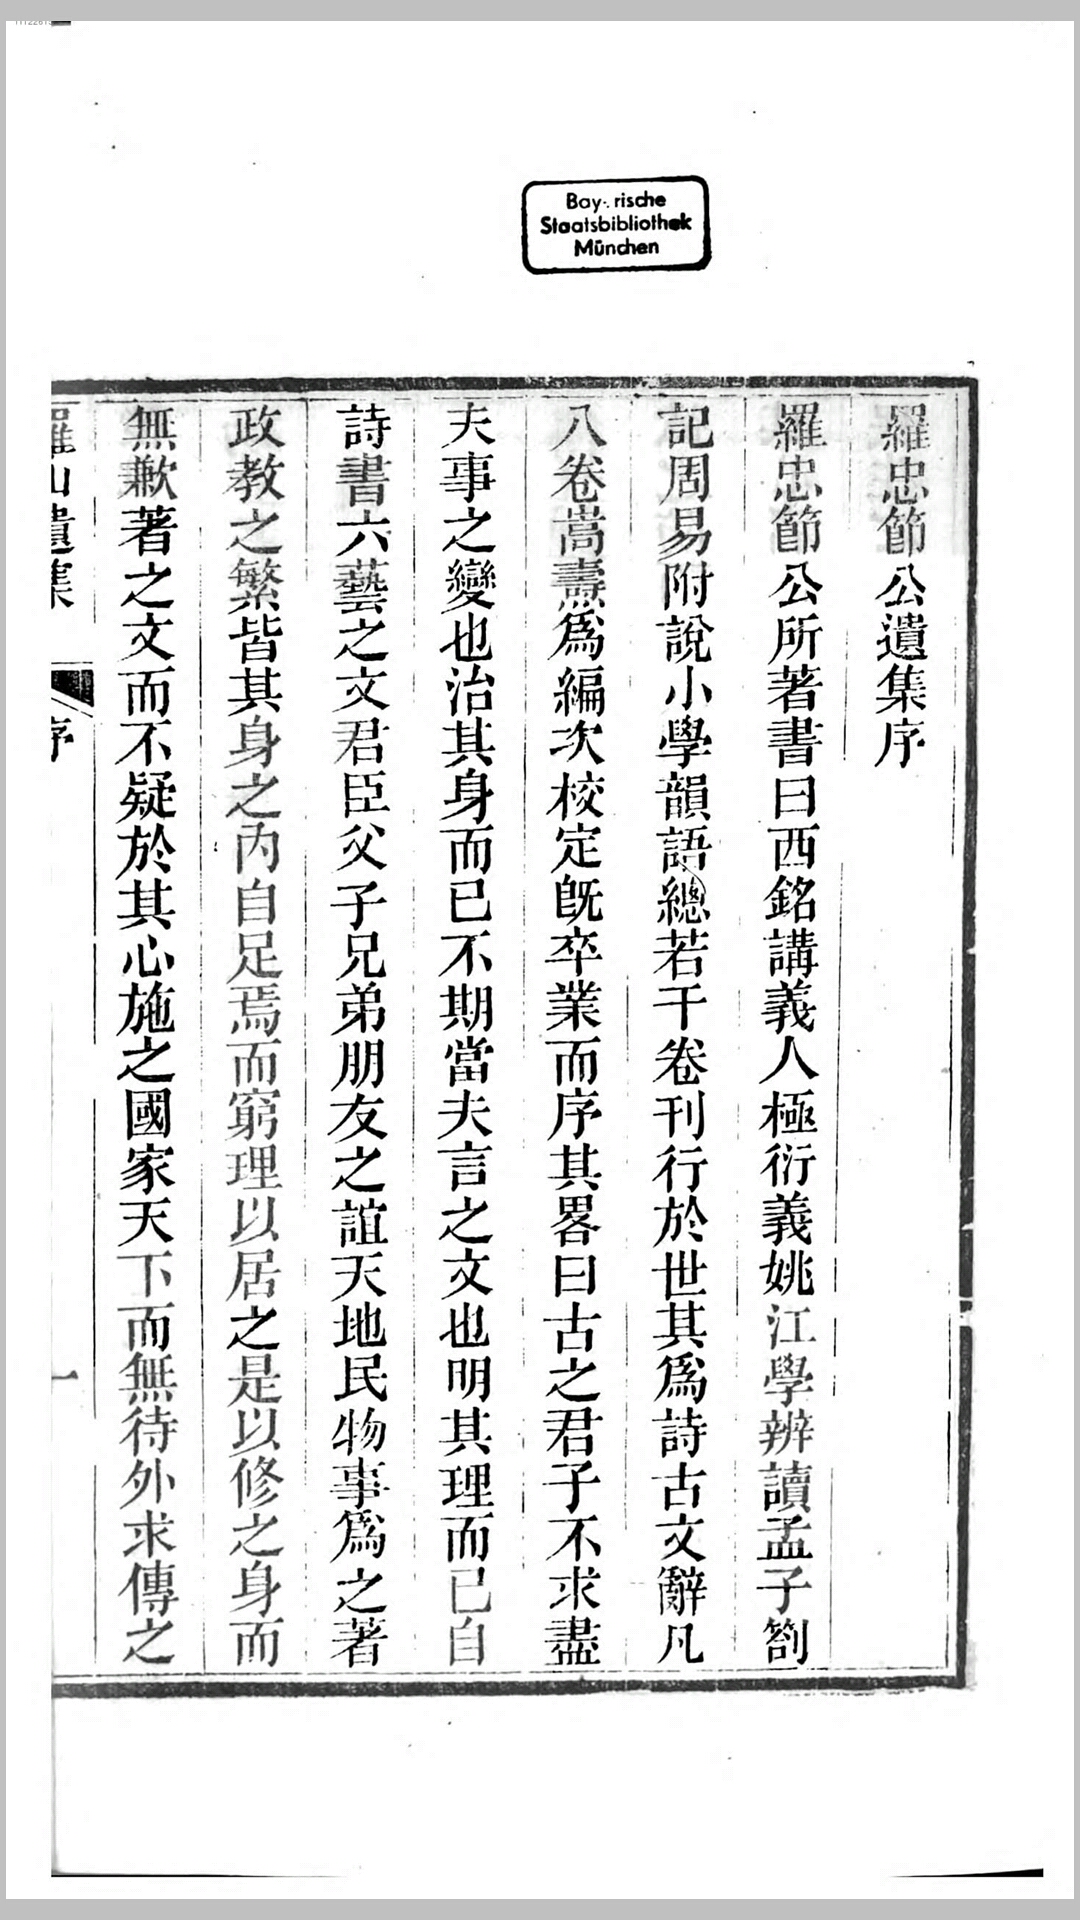 Bay. rische
Staatsbibliothek
München
羅忠節公遺集序
羅忠節公所著書曰西銘講義人極衍義姚江學辨讀孟子劄
記周易附說小學韻語總若干卷刊行於世其爲詩古文辭凡
八卷嵩燾爲編次校定旣卒業而序其畧曰古之君子不求盡
夫事之變也治其身而已不期當夫言之文也明其理而已自
詩書六藝之文君臣父子兄弟朋友之誼天地民物事爲之著
政教之繁皆其身之內自足焉而窮理以居之是以修之身而
無歉著之文而不疑於其心施之國家天下而無待外求傳之
羅山遺集 序 一